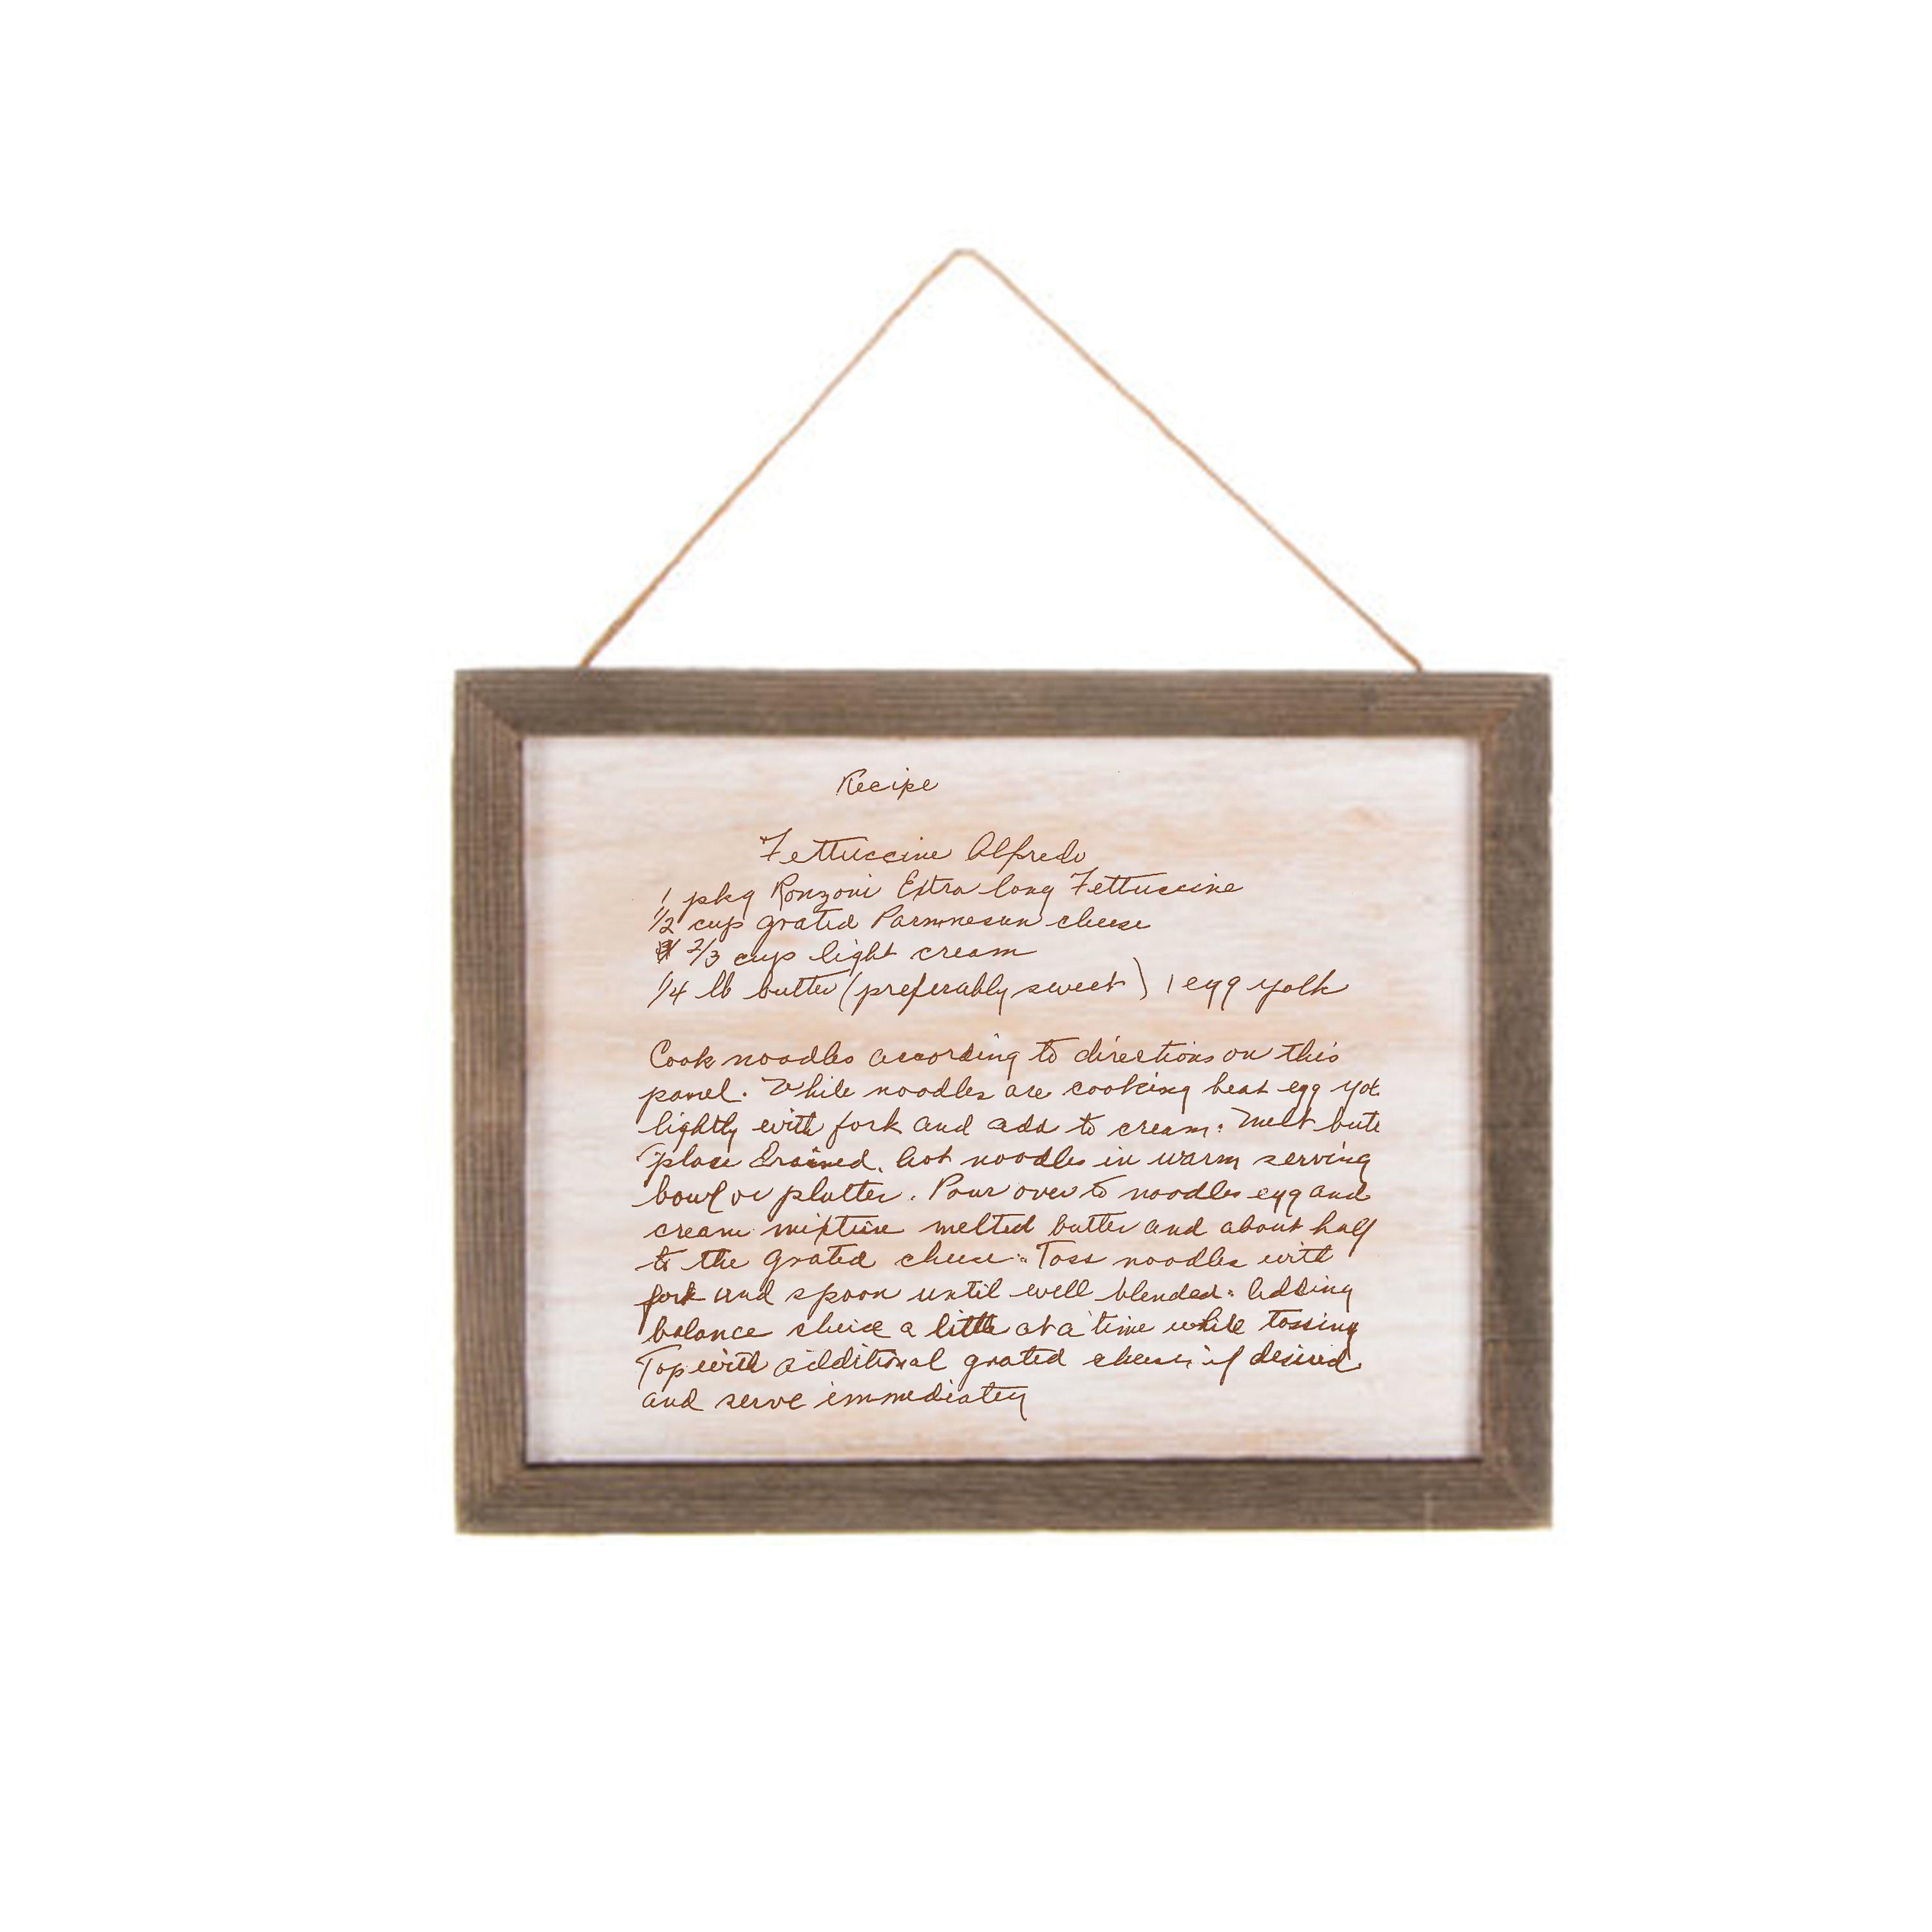 Recipe
Fettuccine Alfredo
1 pkg Ronzoni Extra long Fettuccine
1/2 cup grated Parmnesan cheese
2/3 cup light cream
1/4 lb butter (preferably sweet) 1 egg yolk
Cook noodles according to directions on this
panel. While noodles are cooking beat egg yol
lightly with fork and add to cream. Melt butte
place drained, hot noodles in warm serving
bowl or platter. Pour over to noodles egg and
cream mixture melted butter and about half
to the grated cheese. Toss noodles with
fork and spoon until well blended. Adding
balance cheese a little at a time while tossing
Top with additional grated cheese if desired
and serve immediately